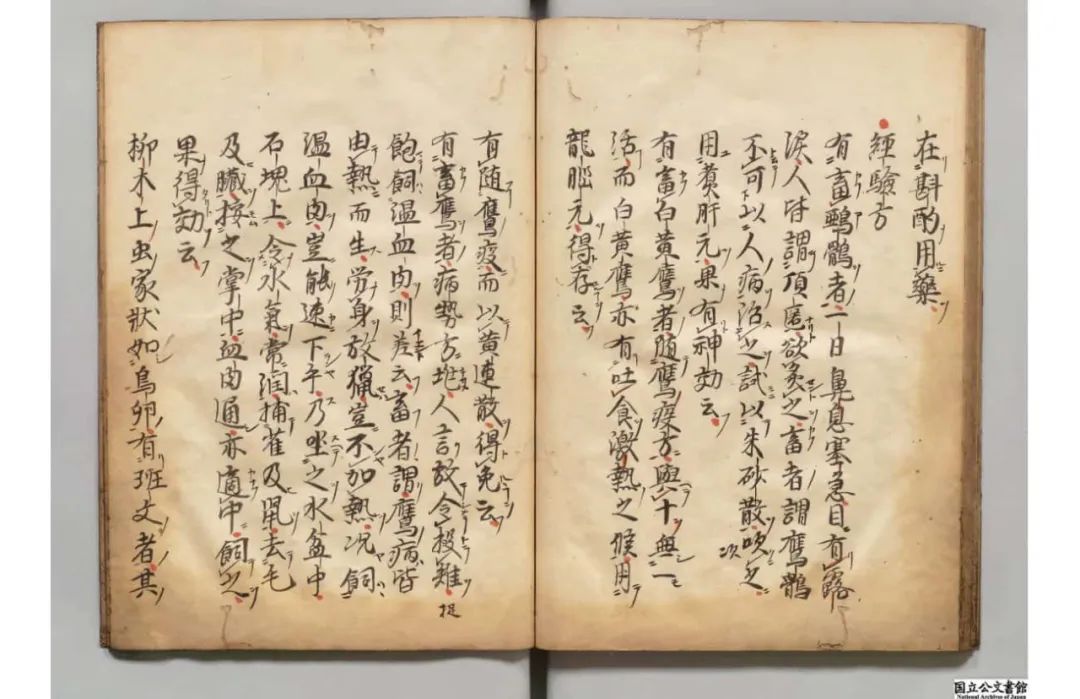 在斟酌用藥
經驗方
有畜鸸鶻者一日鼻息塞急目有露
淚人皆謂頂危欲灸之畜者謂鷹鶻
不可以人病治之試以朱砂散吹之
次
用蕡肝元果有神効云
有畜白黄鷹者随鷹疫方與十無一
活而白黄鷹亦有吐食激熱之候用
龍腦元得存云
有随鷹疫而以黄連散得免云
有畜鷹者病勢方Ȁ人言放令投雉
捉
飽飼温血肉則差云畜者謂鷹病皆
由熱而生労身放獵豈不加熱况飼
温血肉豈能速下乎乃坐之水盆中
石塊上令水氣常潤捕雀及鼠去毛
及臓按之掌中血肉通亦適中飼之
果得効云
柳木上虫家状如鳥卵有班文者其
国立公文書館
National Archives of Japan